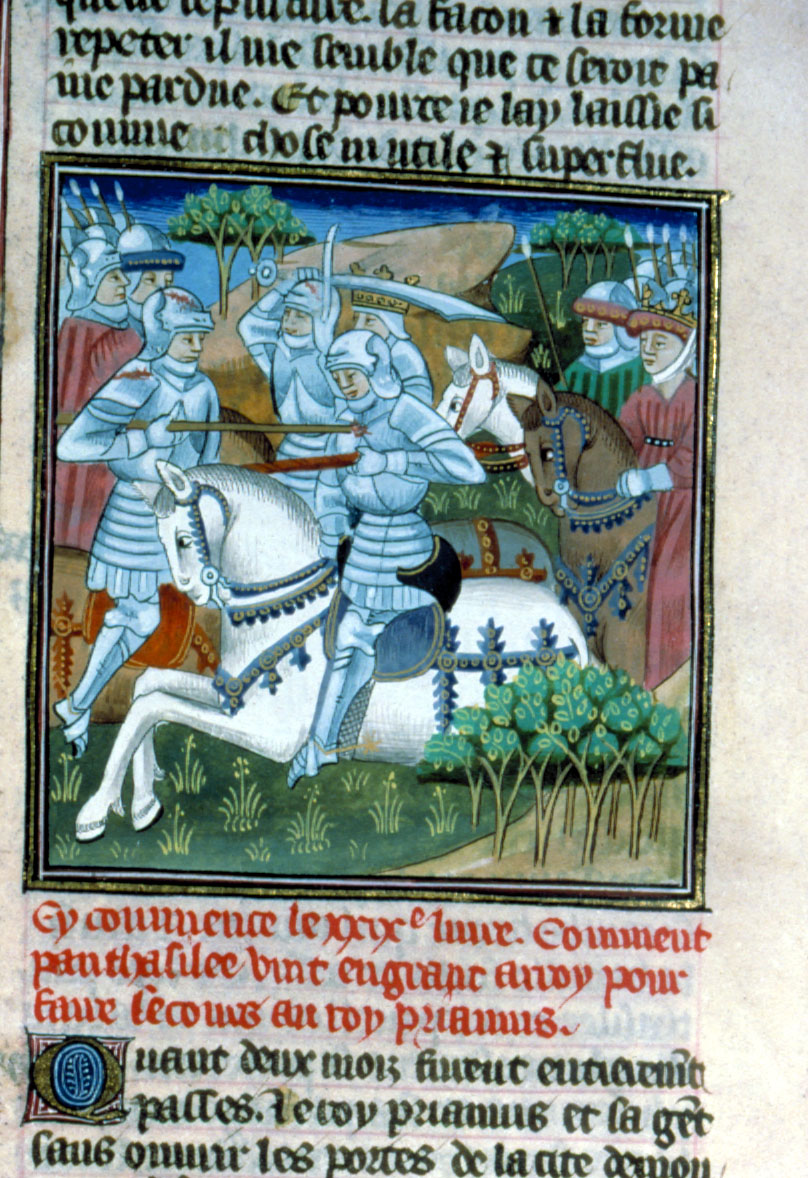 repeter il me semble que ce seroit pa
ine pardue. Et pource ie lay laissie si
comme chose inutile ⁊ superflue.
Cy commence le xxixe liure. Comment
panthasilee vint en grant arroy pour
faire secours au roy priamus.
Quant deux mois furent entierem̄t
passes. Le roy priamus et sa gēt
sans ouurir les portes de la cite demou